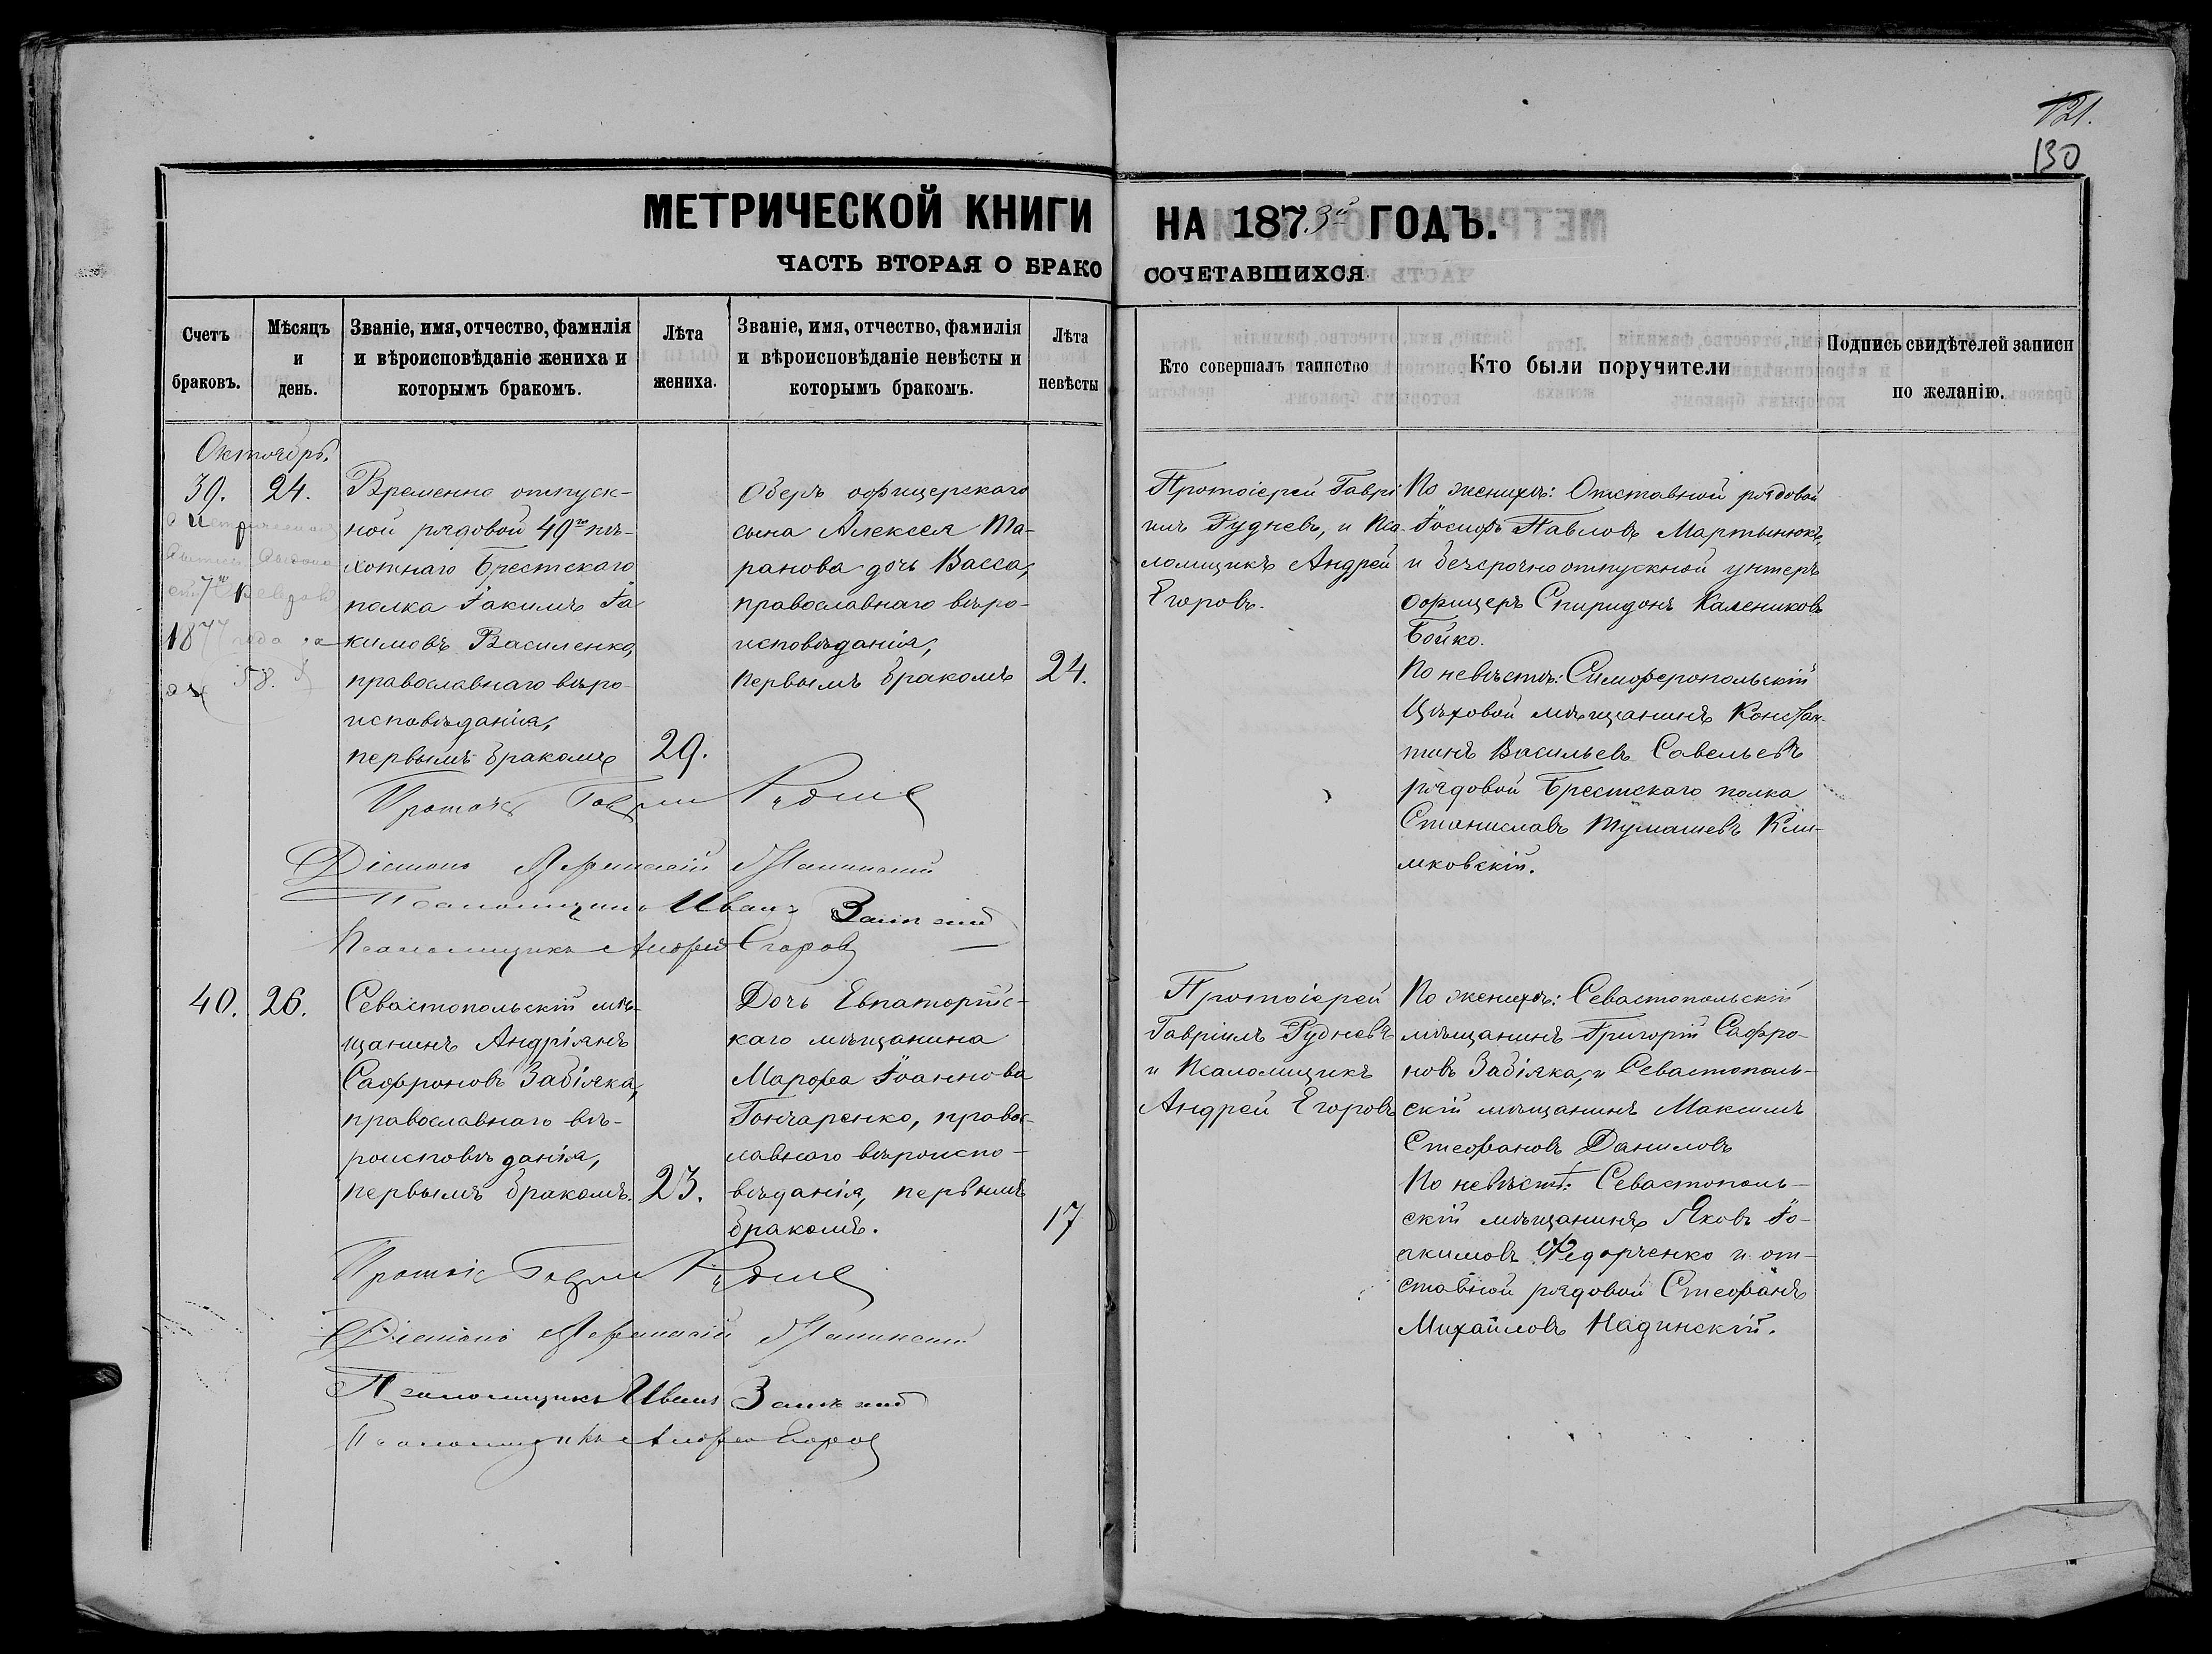 121.
130
МЕТРИЧЕСКОЙ КНИГИ НА 1873й ГОДЪ.
ЧАСТЬ ВТОРАЯ О БРАКОСОЧЕТАВШИХСЯ
Счетъ браковъ.
Мѣсяцъ и день.
Званіе, имя, отчество, фамилія
и вѣроисповѣданіе жениха и
которымъ бракомъ.
Лѣта жениха.
Званіе, имя, отчество, фамилія
и вѣроисповѣданіе невѣсты и
которымъ бракомъ.
Лѣта невѣсты
Кто совершалъ таинство
Кто были поручители
Подпись свидѣтелей записи
по желанію.
Октябрь.
39. 24.
Временно отпуск-
ной рядовой 49го пѣ-
хотнаго Брестскаго
полка Іакимъ Іа
кимовъ Василенко,
православнаго вѣро-
исповѣданія,
первымъ бракомъ
29.
Оберъ офицерскаго
сына Алексея Та-
ранова дочь Васса,
православнаго вѣро-
исповѣданія,
первымъ бракомъ
24.
Протоіерей Гаврі
илъ Рудневъ, и Пса-
ломщикъ Андрей
Егоровъ.
По женихѣ: Отставной рядовой
Іосифъ Павловъ Мартынюкъ,
и безсрочноотпускной унтеръ
офицеръ Спиридонъ Калениковъ
Бойко.
По невѣстѣ: Симферопольскій
Цѣховой мѣщанинъ Констан-
тинъ Васильевъ Савельевъ
рядовой Брестскаго полка
Станиславъ Тумашевъ Кли-
мковскій.
Псаломщикъ Иванъ
Псаломщикъ Андрей Егоровъ
40. 26.
Севастопольскій мѣ-
щанинъ Андріянъ
Сафроновъ Забіяка,
православнаго вѣ-
роисповѣданія,
первымъ бракомъ.
23.
Дочь Евпаторійс-
каго мѣщанина
Марфа Іоаннова
Гончаренко, правос-
лавнаго вѣроиспо-
вѣданія, первымъ
бракомъ.
17
Протоіерей
Гавріилъ Рудневъ
и Псаломщикъ
Андрей Егоровъ
По женихѣ: Севастопольскій
мѣщанинъ Григорій Сафро-
новъ Забіяка, и Севастополь-
скій мѣщанинъ Максимъ
Стефановъ Даниловъ
По невѣстѣ: Севастополь-
скій мѣщанинъ Яковъ Іо-
акимовъ Федорченко и от-
ставной рядовой Стефанъ
Михайловъ Надинскій.
Псаломщикъ Иванъ
Псаломщикъ Андрей Егоровъ